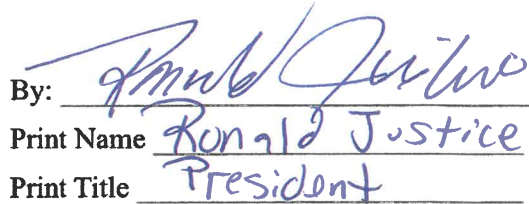 By: Ronald Justice
Print Name Ronald Justice
Print Title President